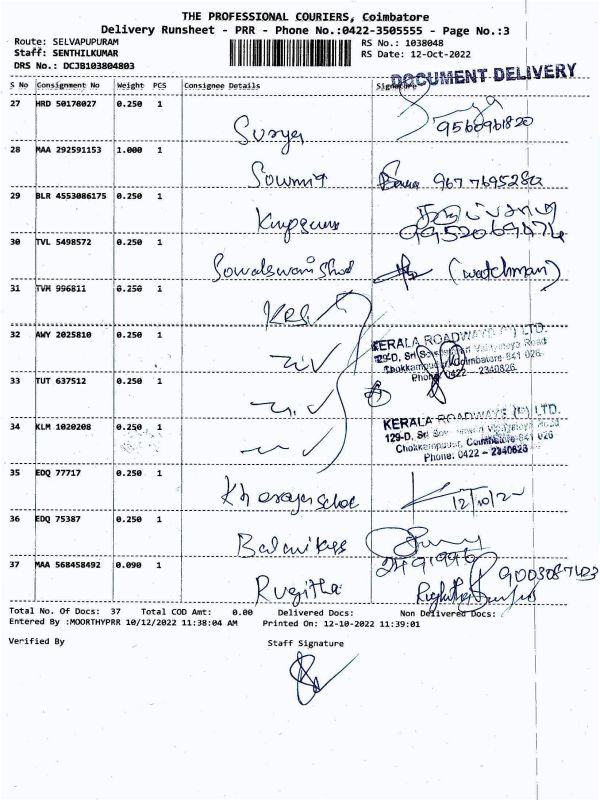 THE PROFESSIONAL COURIERS, Coimbatore
Delivery Runsheet - PRR - Phone No.:0422-3505555 - Page No.:3
Route: SELVAPUPURAM
RS No.: 1038048
Staff: SENTHILKUMAR
RS Date: 12-Oct-2022
DRS No.: DCJB103804803
DOCUMENT DELIVERY
S No Consignment No Weight PCS Consignee Details Signature
27 HRD 50178027 0.250 1
Surya
9560961820
28 MAA 292591153 1.000 1
Sowmit
29 BLR 4553086175 0.250 1
30 TVL 5498572 0.250 1
(watchman)
31 TVM 996811 0.250 1
32 AWY 2025810 0.250 1
KERALA ROADWAYS (P) LTD.
129-D, Sri
Coimbatore 641 026
Phone: 0422 - 2340626
33 TUT 637512 0.250 1
34 KLM 1020208 0.250 1
KERALA ROADWAYS (P) LTD.
129-D, Sri
Coimbatore-641 026
Phone: 0422 - 2340626
35 EDQ 77717 0.250 1
12/10/22
36 EDQ 75387 0.250 1
2491946
37 MAA 568458492 0.090 1
Rugitha
9003087103
Total No. Of Docs: 37 Total COD Amt: 0.00 Delivered Docs: Non Delivered Docs:
Entered By :MOORTHYPRR 10/12/2022 11:38:04 AM Printed On: 12-10-2022 11:39:01
Verified By Staff Signature